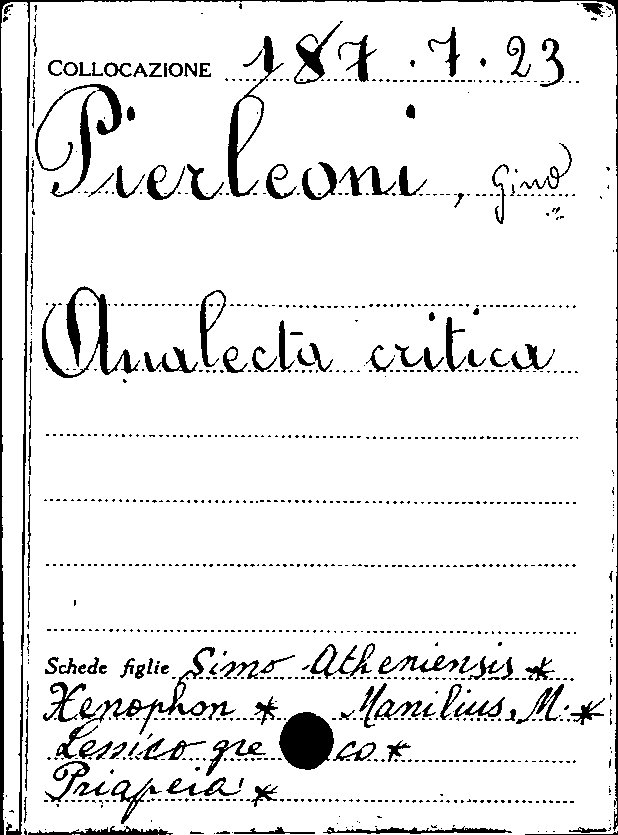 COLLOCAZIONE 187.7.23
Pierleoni, Gino
Analecta critica
Schede figlie Simo Atheniensis *
Xenophon * Manilius, M. *
Lessico greco *
Priapeia *